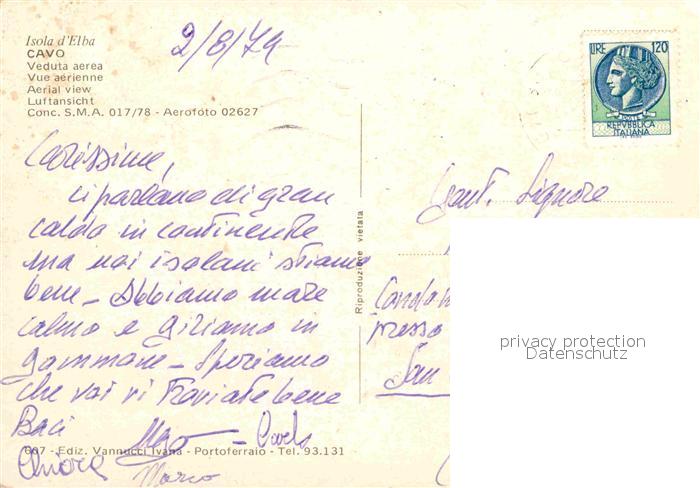 Isola d'Elba
CAVO
Veduta aerea
Vue aérienne
Aerial view
Luftansicht
Conc. S.M.A. 017/78 - Aerofoto 02627
2/8/79
LIRE 120
POSTE
REPVBBLICA
ITALIANA
Carissime,
ci parlano di gran
caldo in continente
ma noi isolani stiamo
bene - Abbiamo mare
calmo e giriamo in
gommone - Speriamo
che voi vi troviate bene
Baci
Chiara
Marco
Riproduzione vietata
Gent. Signore
presso
San
607 - Ediz. Vannucci Ivana - Portoferraio - Tel. 93.131
privacy protection
Datenschutz